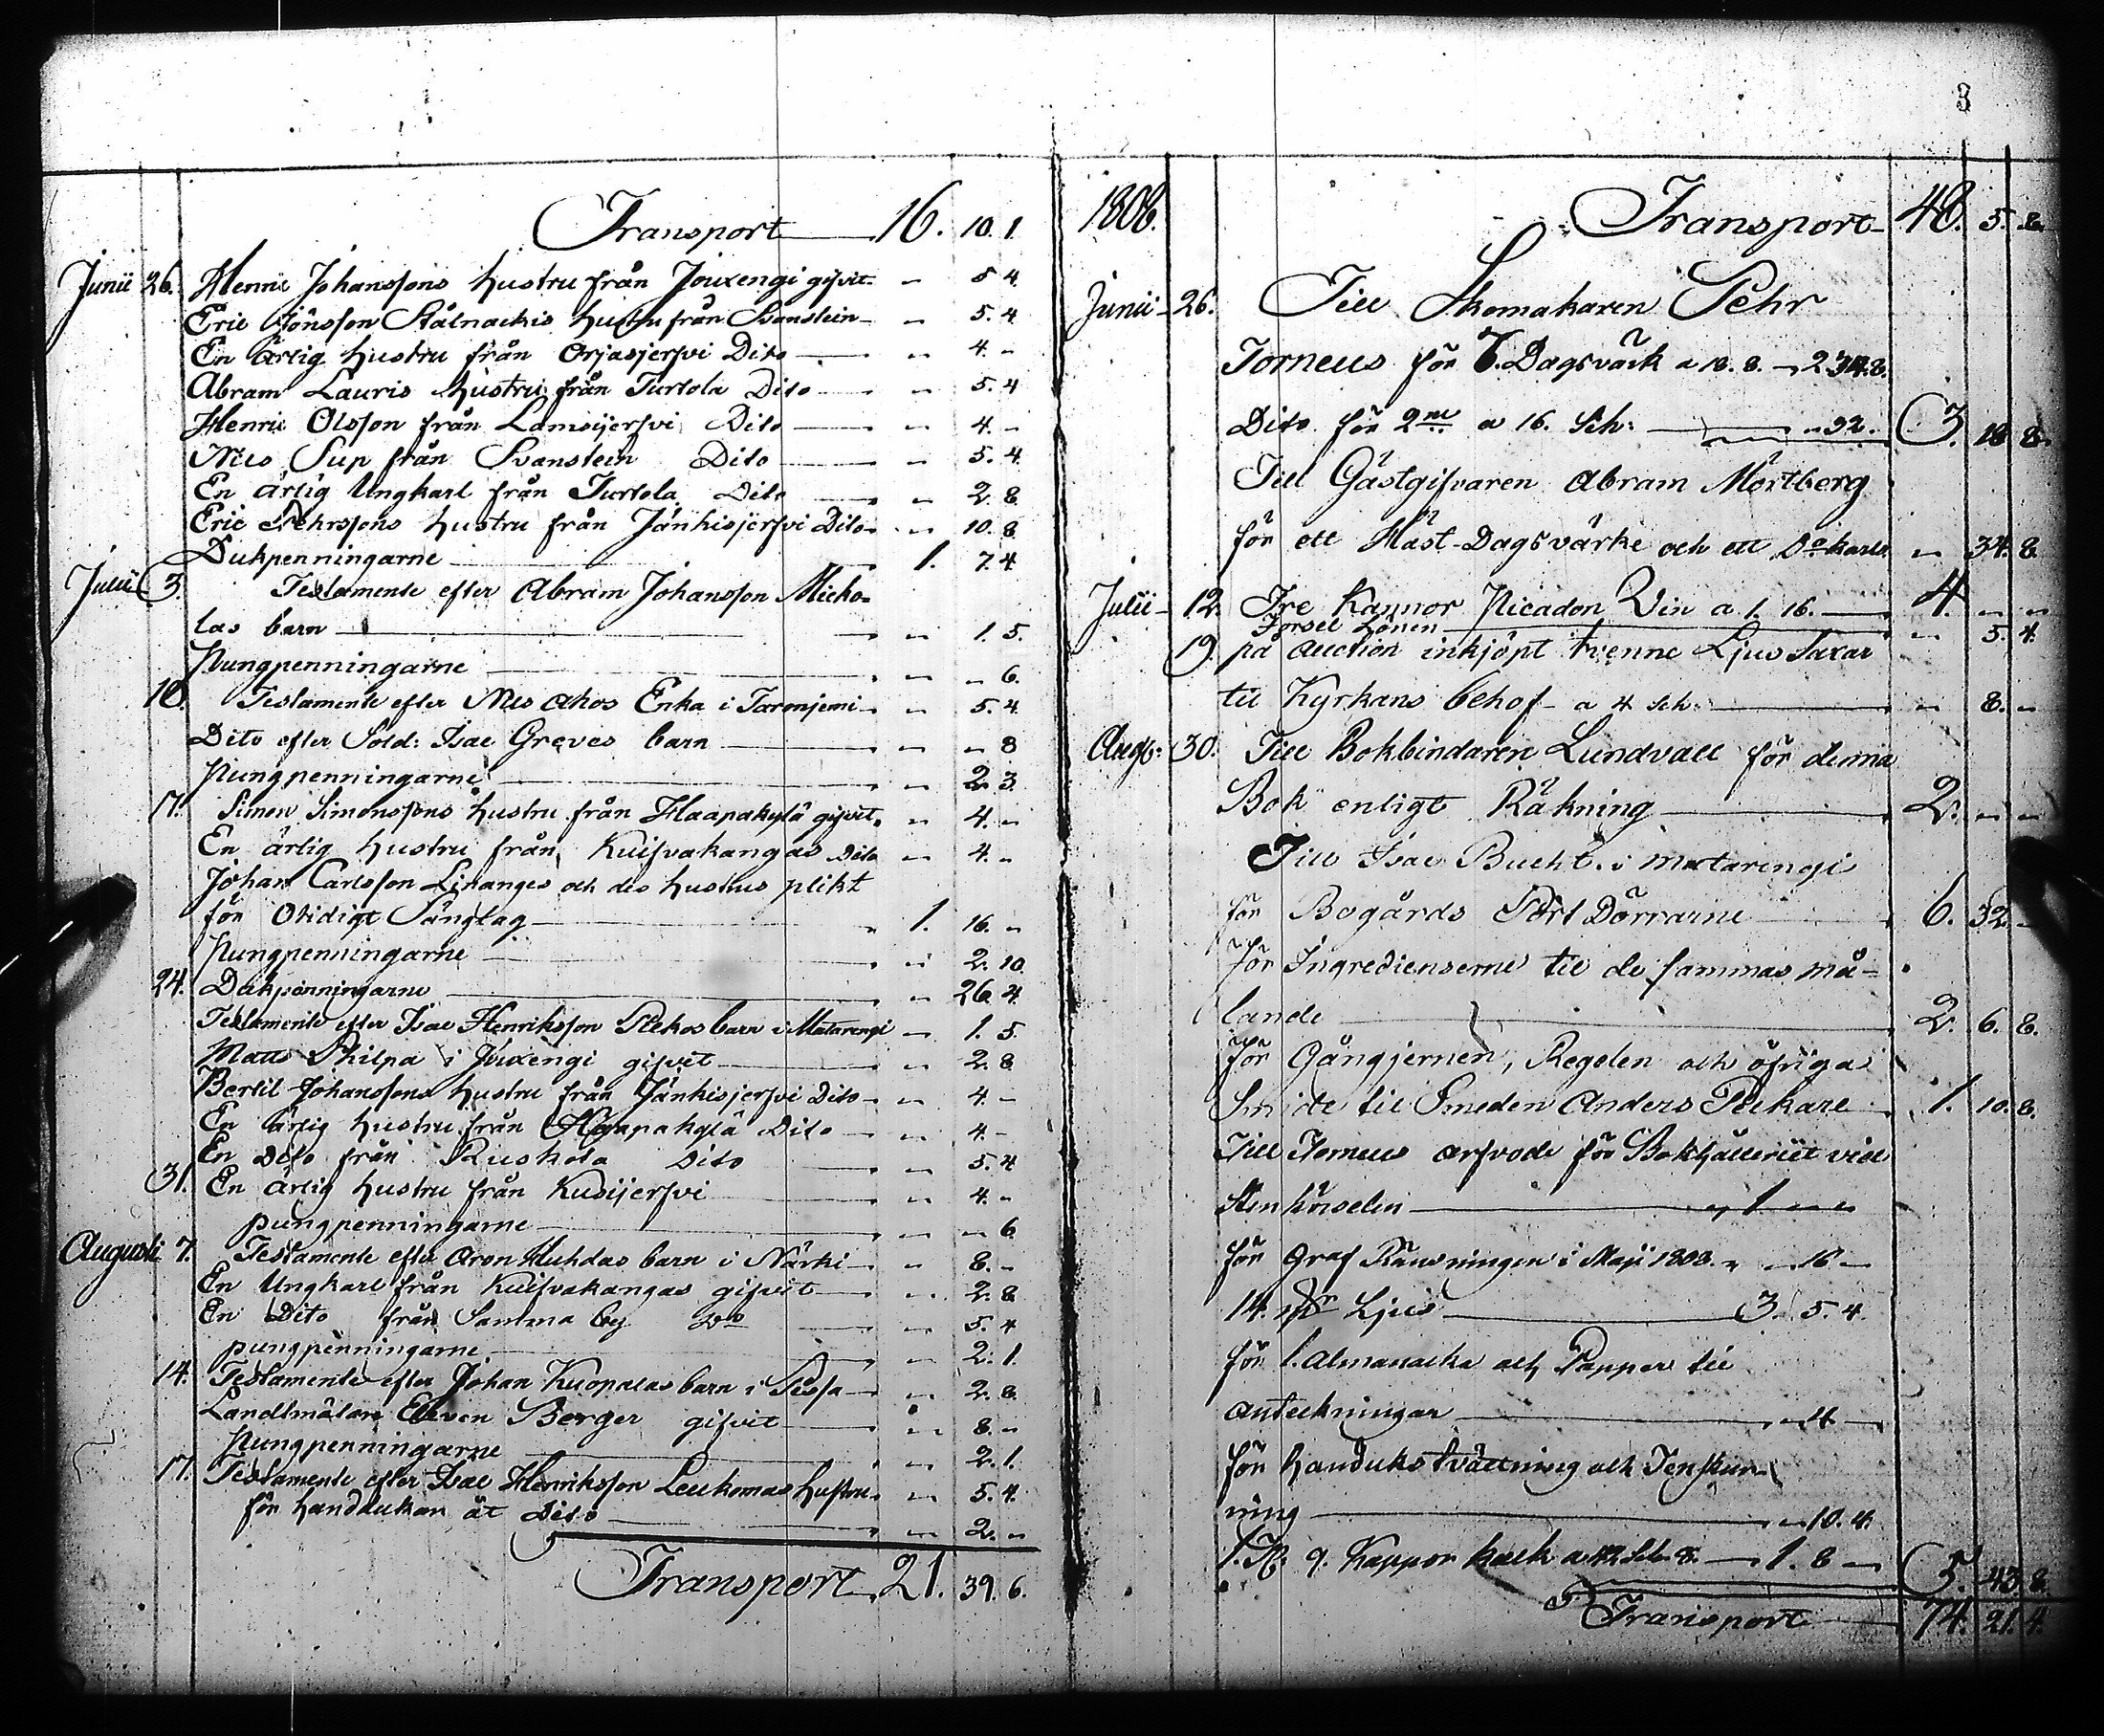 Transport 16. 10. 1.
Junii 26. Henric Johanssons hustru från Jouxengi gifvit - 5 4
Eric Jönsson Stålnackis hustru från Svanstein - 5. 4
En ärlig hustru från Orjasjerfvi Dito - 4. -
Abram Lauris hustru från Turtola Dito - 5. 4
Henric Olsson från Lamsijerfvi Dito - 4. -
Nils Sup från Svanstein Dito - 5. 4
En ärlig Ungkarl från Turtola Dito - 2. 8
Eric Pehrssons hustru från Jänkisjerfvi Dito - 10. 8
Dukpenningarne 1. 7. 4
Julii 3. Testamente efter Abram Johansson Micko-
las barn - 1. 5.
Pungpenningarne - - 6.
10. Testamente efter Nils Ahos Enka i Tarenjemi - 5. 4.
Dito efter Sold: Isac Greves barn - - 8
Pungpenningarne - 2. 3.
17. Simon Simonssons hustru från Haapakylä gifvit - 4. -
En ärlig hustru från Kuifvakangas Dito - 4. -
Johan Carlsson Lihanges och des hustrus plikt
för Otidigt Sänglag 1. 16. -
Pungpenningarne - 2. 10.
24. Dukpenningarne - 26. 4.
Testamente efter Isac Henriksson Pekos barn i Matarengi - 1. 5.
Matts Philpa i Juxengi gifvit - 2. 8
Bertil Johanssons hustru från Jänkisjerfvi Dito - 4. -
En ärlig hustru från Haapakylä Dito - 4. -
En Dito från Ruskola Dito - 5. 4
31. En ärlig hustru från Kusijerfvi - 4. -
pungpenningarne - - 6
Augusti 7. Testamente efter Aron Huhdas barn i Närki - 8. -
En Ungkarl från Kuifvakangas gifvit - 2. 8
En Dito från Samma by Do - 5. 4
pungpenningarne - 2. 1.
14. Testamente efter Johan Kuopalas barn i - 2. 8.
Landtmätare Eleven Berger gifvit - 8. -
Pungpenningarne - 2. 1.
17. Testamente efter Isac Henriksson Leukomas hustru - 5. 4.
för handdukar åt Dito - 2. -
Transport 21. 39. 6.
3
1808. Transport 48. 5. 8.
Junii - 26. Till Skomakaren Pehr
Torneus för 7. Dagsvärk a 18. 8. - 2. 34. 8.
Dito för 2ne a 16. Sch: - 32. 3. 18 8.
Till Gästgifvaren Abram Mörtberg
för ett Häst-Dagsvärke och ett Do karls - 34. 8
Julii - 12. Tre Kannor Picadon Vin a 1. 16. 4. - -
Forsel Lönen - 5. 4.
19. på Auction inkjöpt tvenne Ljus Saxar
til Kyrkans behof a 4 sch: - 8. -
Aug: 30. Till Bokbindaren Lundvall för denna
Bok enligt Räkning 2. - -
Till Isac Bucht i Matarengi
för Bogårds Port Dörrarne 6. 32. -
för Ingredienserne til de sammas må-
lande 2. 6. 8.
för Gångjernen, Regelen och öfriga
Smide til Smeden Anders Pekare 1. 10. 8.
Till Torneus arfvode för Bokhålleriet vid
Stenkörselen - 1 - -
för Graf Räns ningen i Maji 1808. - - 16 -
14. Ljus 3. 5 4.
för 1. Almanacka och Papper til
anteckningar - 4 -
för handuks tvättning och Tenskur-
ning - 10. 4.
1. 9. Kappor kalk a 42 Sch: 8. 1. 8 - 5. 43. 8
Transport 74. 21. 4.